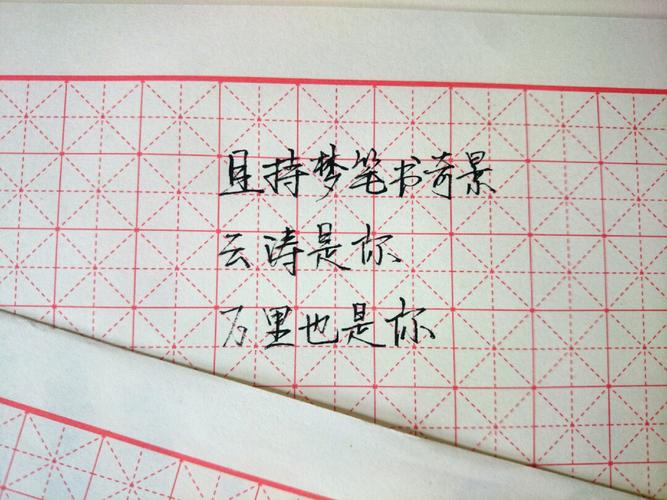 且持梦笔书奇景
云涛是你
万里也是你